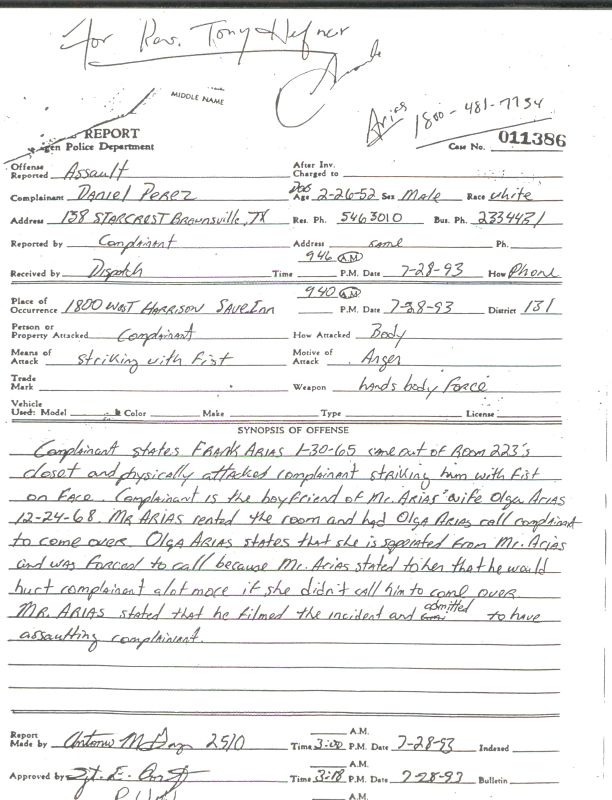 for Rev. Tony Hefner
MIDDLE NAME
Arias 1800-481-7734
REPORT
gen Police Department
Case No. 011386
Offense Reported Assault
After Inv. Charged to
Complainant DANIEL PEREZ
DOB Age 2-26-52 Sex Male Race white
Address 138 STARCREST BROWNSVILLE, TX Res. Ph. 5463010 Bus. Ph. 2334431
Reported by Complainant Address same Ph.
Received by Dispatch Time 946 A.M. P.M. Date 7-28-93 How Phone
Place of Occurrence 1800 WEST HARRISON SAVE INN 940 A.M. P.M. Date 7-28-93 District 131
Person or Property Attacked Complainant How Attacked Body
Means of Attack striking with Fist Motive of Attack Anger
Trade Mark Weapon hands body Force
Vehicle Used: Model Color Make Type License
SYNOPSIS OF OFFENSE
Complainant states FRANK ARIAS 1-30-65 came out of Room 223's
closet and physically attacked complainant striking him with fist
on Face. Complainant is the boyfriend of Mr. ARIAS' wife Olga ARIAS
12-24-68. MR ARIAS rented the room and had OLGA ARIAS call complainant
to come over. OLGA ARIAS states that she is seperated from Mr. Arias
and was forced to call because Mr. Arias stated to her that he would
hurt complainant alot more if she didn't call him to come over.
MR. ARIAS stated that he filmed the incident and admitted to have
assaulting complainant.
Report Made by 2510 Time 3:00 A.M. P.M. Date 7-28-93 Indexed
Approved by Sgt. E. Time 3:18 A.M. P.M. Date 7-28-93 Bulletin
A.M.